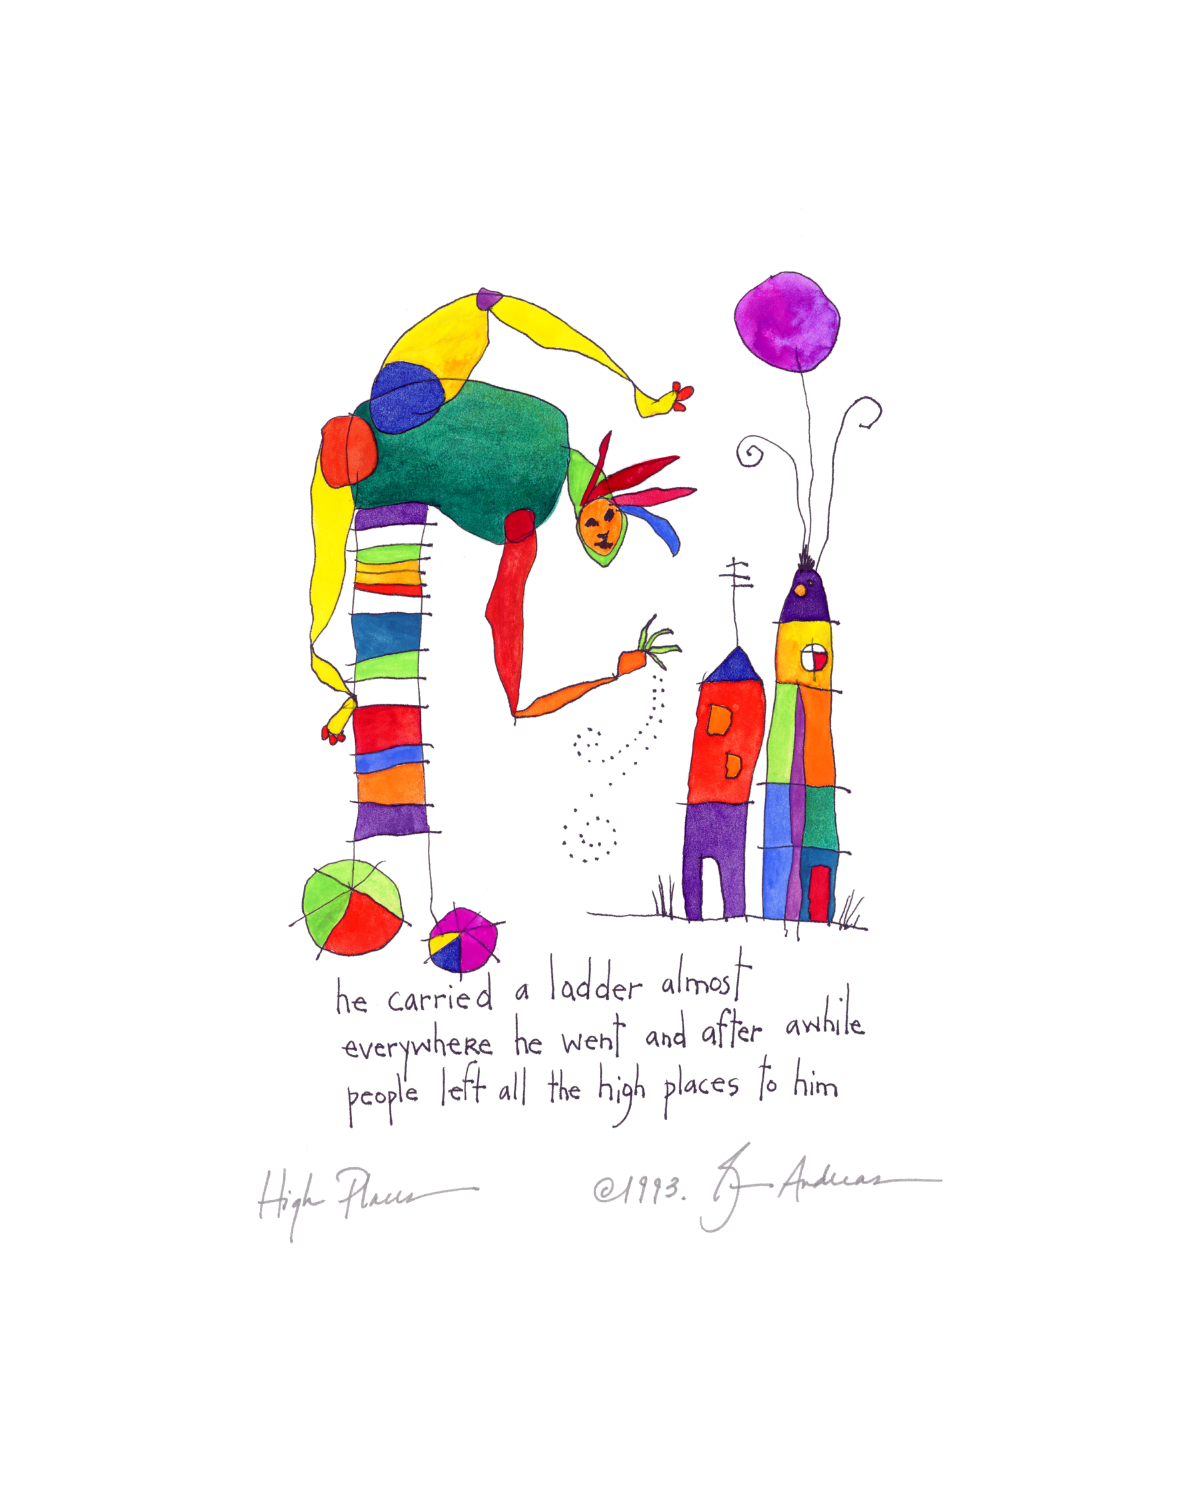 he carried a ladder almost
everywhere he went and after awhile
people left all the high places to him
High Places ©1993. Andreas